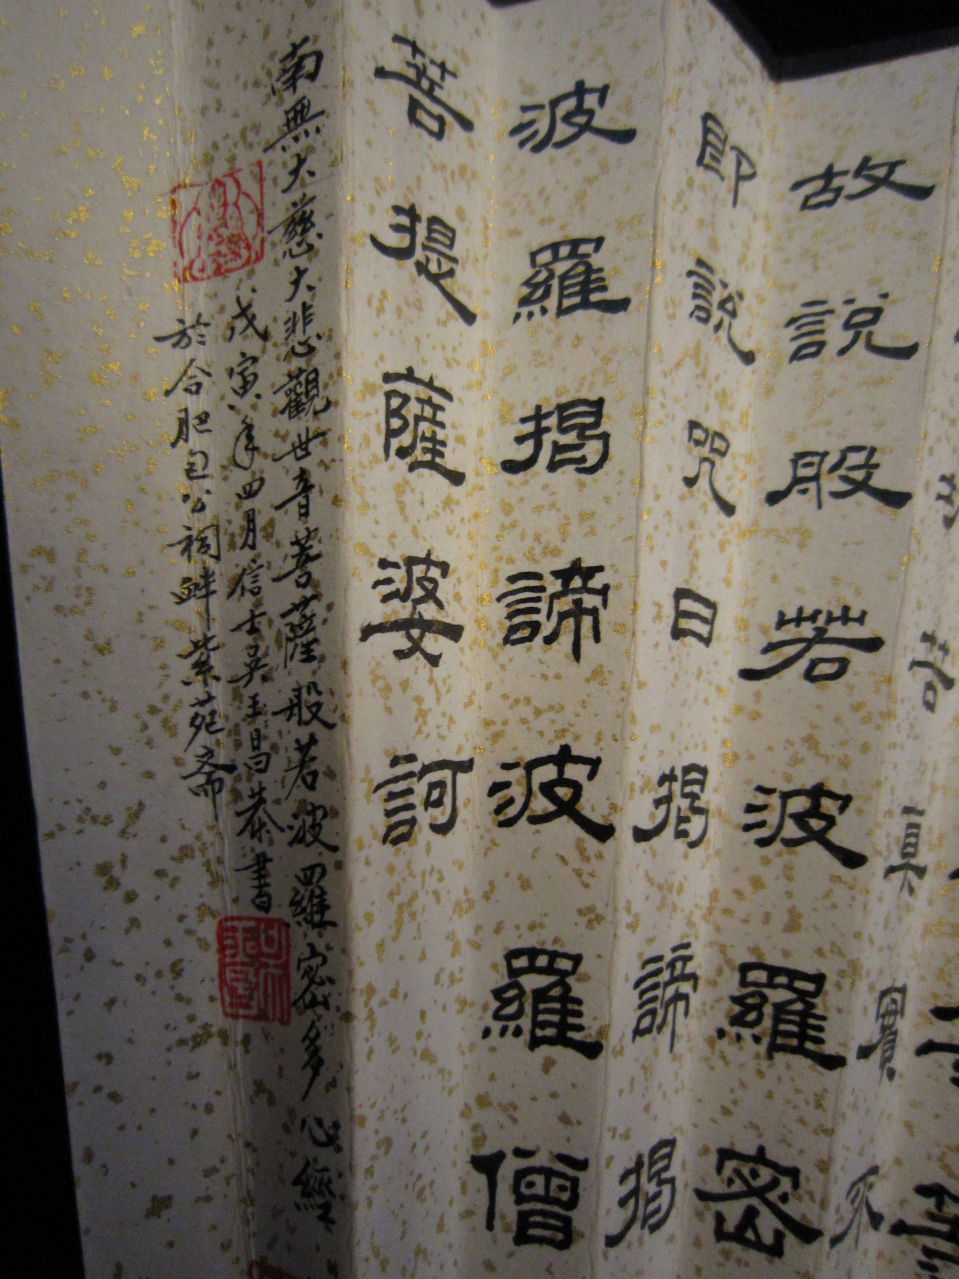 真實不
故說般若波羅密
即說咒曰揭諦揭
波羅揭諦波羅僧
菩提薩婆訶
南無大慈大悲觀世音菩薩般若波羅密多心經
戊寅年四月信士吳玉昌恭書
於合肥包公祠畔紫苑斋